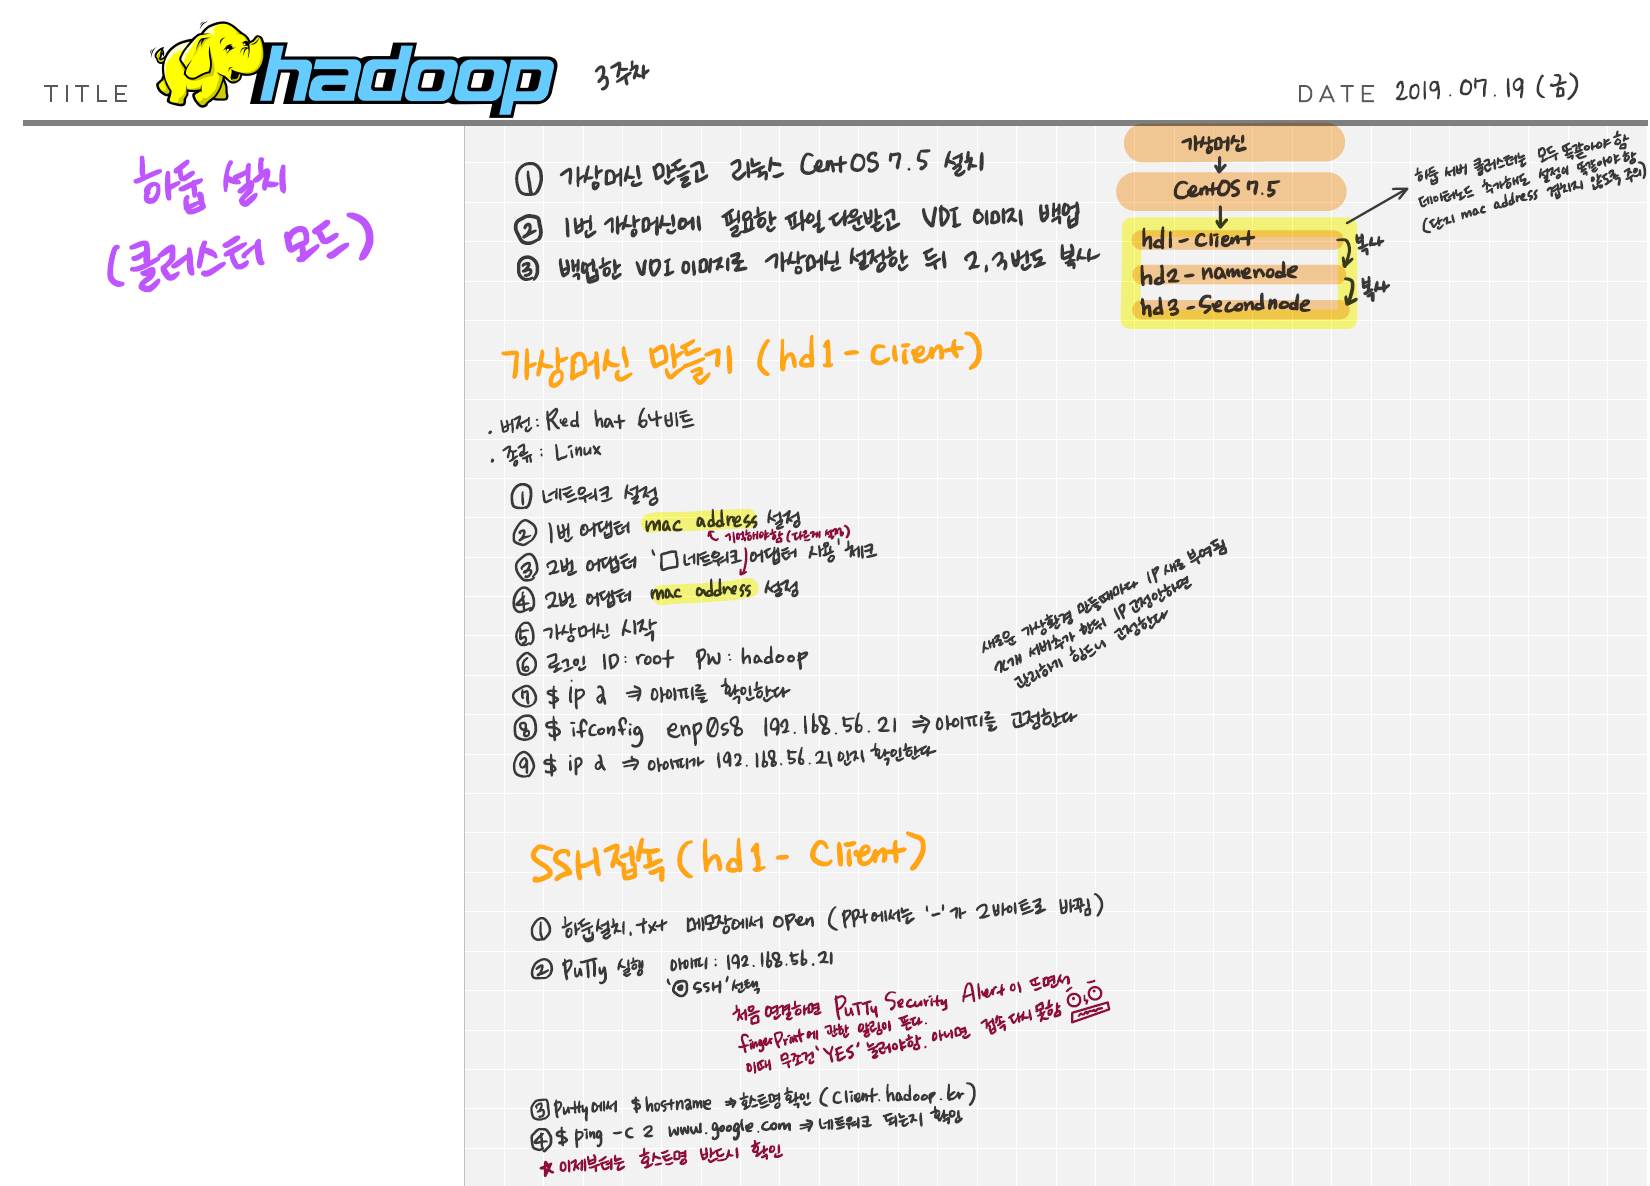 TITLE
hadoop
3주차
DATE 2019.07.19 (금)
하둡 설치
(클러스터 모드)
① 가상머신 만들고 리눅스 CentOS 7.5 설치
② 1번 가상머신에 필요한 파일 다운받고 VDI 이미지 백업
③ 백업한 VDI 이미지로 가상머신 설정한 뒤 2,3번도 복사
가상머신
CentOS 7.5
hd1-client
hd2-namenode
hd3-Secondnode
복사
복사
하둡 서버 클러스터는 모두 똑같아야 함
데이터노드 추가해도 설정이 똑같아야 함
(단지 mac address 겹치지 않도록 주의)
가상머신 만들기 (hd1-client)
. 버전: Red hat 64비트
. 종류: Linux
① 네트워크 설정
② 1번 어댑터 mac address 설정
기억해야함 (다른게 설정)
③ 2번 어댑터 '□네트워크 어댑터 사용' 체크
④ 2번 어댑터 mac address 설정
⑤ 가상머신 시작
⑥ 로그인 ID: root PW: hadoop
⑦ $ ip a ⇒ 아이피를 확인한다
⑧ $ ifconfig enp0s8 192.168.56.21 ⇒ 아이피를 고정한다
⑨ $ ip a ⇒ 아이피가 192.168.56.21인지 확인한다
새로운 가상환경 만들때마다 IP 새로 부여됨
서버추가 한뒤 IP 고정안하면
관리하기 힘드니 고정한다
SSH 접속 (hd1-Client)
① 하둡설치.txt 메모장에서 open (PPt에서는 '-'가 2바이트로 바뀜)
② PuTTy 실행 아이피: 192.168.56.21
'◉ SSH' 선택
처음 연결하면 PuTTy Security Alert이 뜨면서
fingerPrint에 관한 알림이 뜬다.
이때 무조건 'YES' 눌러야함. 아니면 접속 다시 못함
③ Putty에서 $ hostname ⇒ 호스트명 확인 (Client.hadoop.kr)
④ $ ping -c 2 www.google.com ⇒ 네트워크 되는지 확인
★ 이제부터는 호스트명 반드시 확인